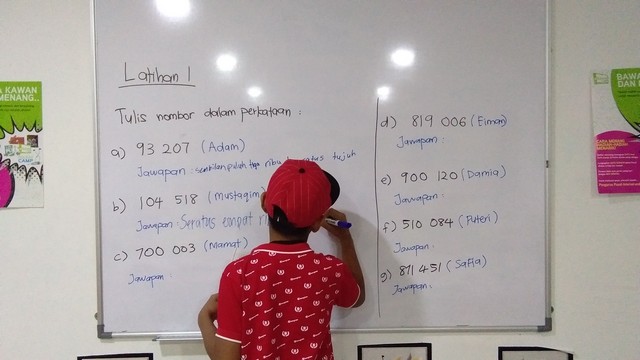 Latihan 1
Tulis nombor dalam perkataan :
a) 93 207 (Adam)
Jawapan : sembilan puluh tiga ribu ratus tujuh
b) 104 518 (Mustaqim)
Jawapan : Seratus empat
c) 700 003 (Mamat)
Jawapan :
d) 819 006 (Eiman)
Jawapan :
e) 900 120 (Damia)
Jawapan :
f) 510 084 (Puteri)
Jawapan :
g) 871 451 (Safia)
Jawapan :
A KAWAN
MENANG...
CAMP
BAWA
DAN